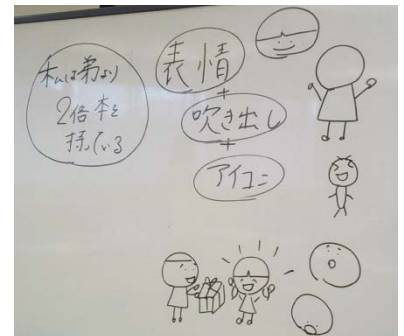 私は弟より
2倍本を
持っている
表情
+
吹き出し
+
アイコン